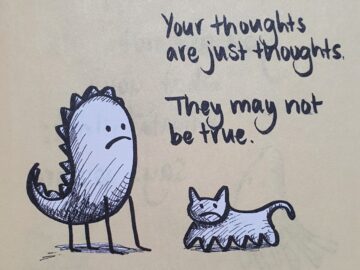 Your thoughts
are just thoughts.
They may not
be true.